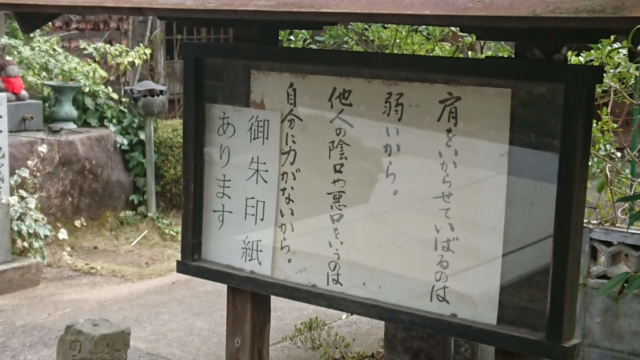 肩をいからせていばるのは
弱いから。
他人の陰口や悪口をいうのは
自分に力がないから。
御朱印紙
あります